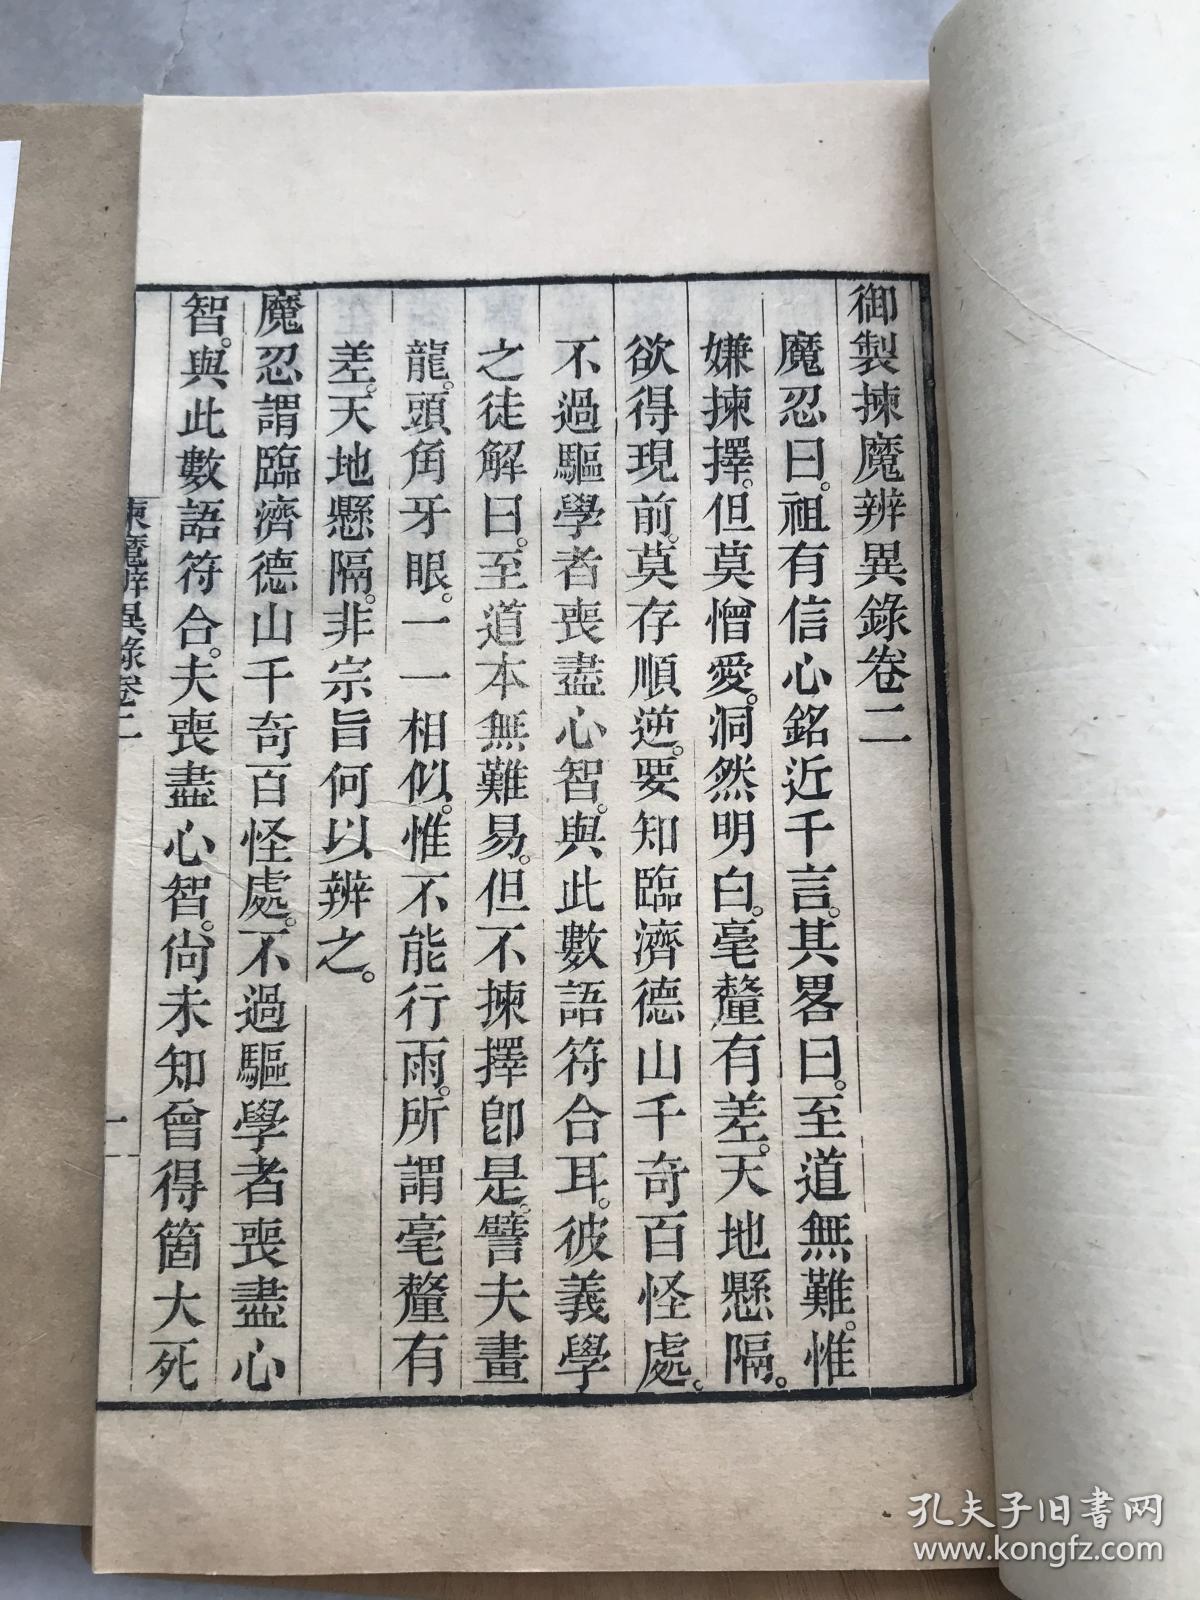 御製揀魔辨異錄卷二
魔忍曰。祖有信心銘近千言。其畧曰。至道無難。惟
嫌揀擇。但莫憎愛。洞然明白。毫釐有差。天地懸隔。
欲得現前。莫存順逆。要知臨濟德山千奇百怪處。
不過驅學者喪盡心智。與此數語符合耳。彼義學
之徒解曰。至道本無難易。但不揀擇卽是。譬夫畫
龍。頭角牙眼。一一相似。惟不能行雨。所謂毫釐有
差。天地懸隔。非宗旨何以辨之。
魔忍謂臨濟德山千奇百怪處。不過驅學者喪盡心
智。與此數語符合。夫喪盡心智。尙未知曾得箇大死
揀魔辨異錄卷二
一
孔夫子旧书网
www.kongfz.com